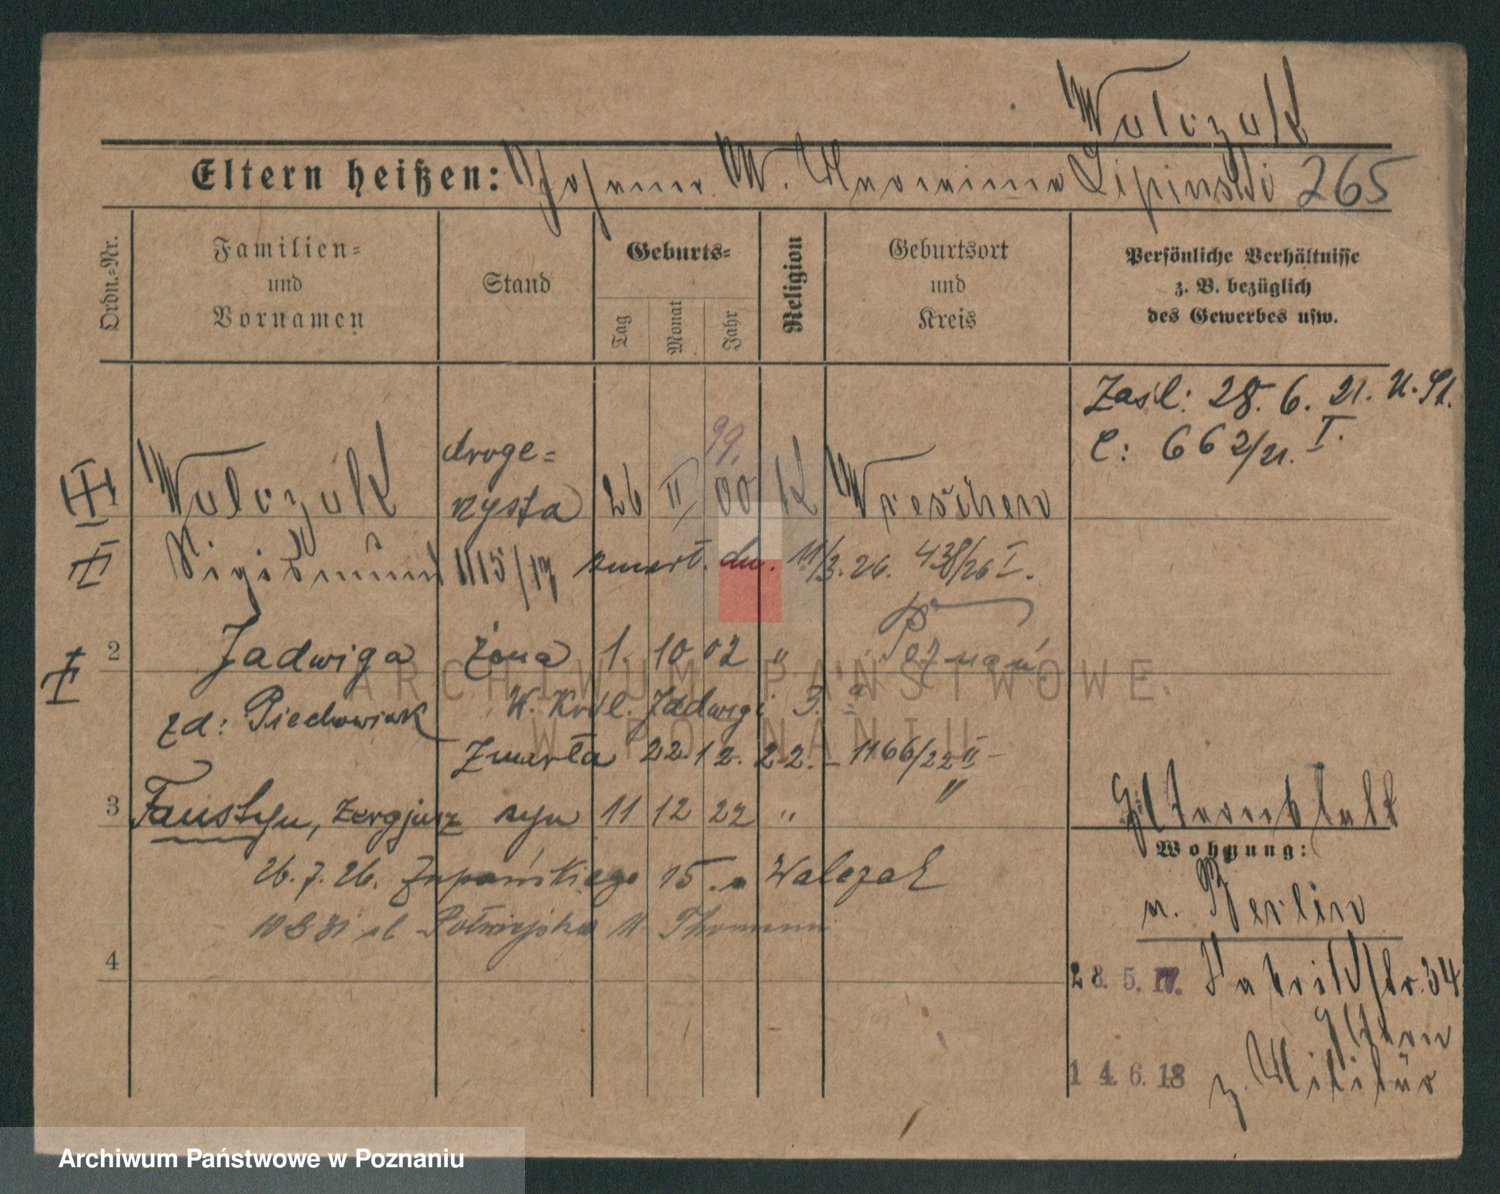 Walczak
Eltern heißen: Johann W. Lipinski 265
Ordn.-Nr.
Familien-
und
Vornamen
Stand
Geburts-
Tag
Monat
Jahr
Religion
Geburtsort
und
Kreis
Persönliche Verhältnisse
z. B. bezüglich
des Gewerbes usw.
Zaśl: 28. 6. 21. U. St.
C: 662/21. I.
99.
Walczak droge=
rzysta 26 II 00 K Wreschen
Sigismund 1115/17 zmarł. dn. 11/3. 26. 438/26 I.
2 Jadwiga żona 1. 10 02 " Poznań
zd: Piechowiak W. Król. Jadwigi 3.a
Zmarła 22. 12. 22. – 1166/22 II –
3 Faustyn, Zergjusz syn 11 12 22 " "
26. 7. 26. Żupańskiego 15. Walczak
Półwiejska Thomann
4
Elternblatt
Wohnung:
n. Berlin
28. 5. 17. Fabrikstr. 34
Eltern
1 4. 6. 18 z. Militär
ARCHIWUM PAŃSTWOWE
W POZNANIU
Archiwum Państwowe w Poznaniu